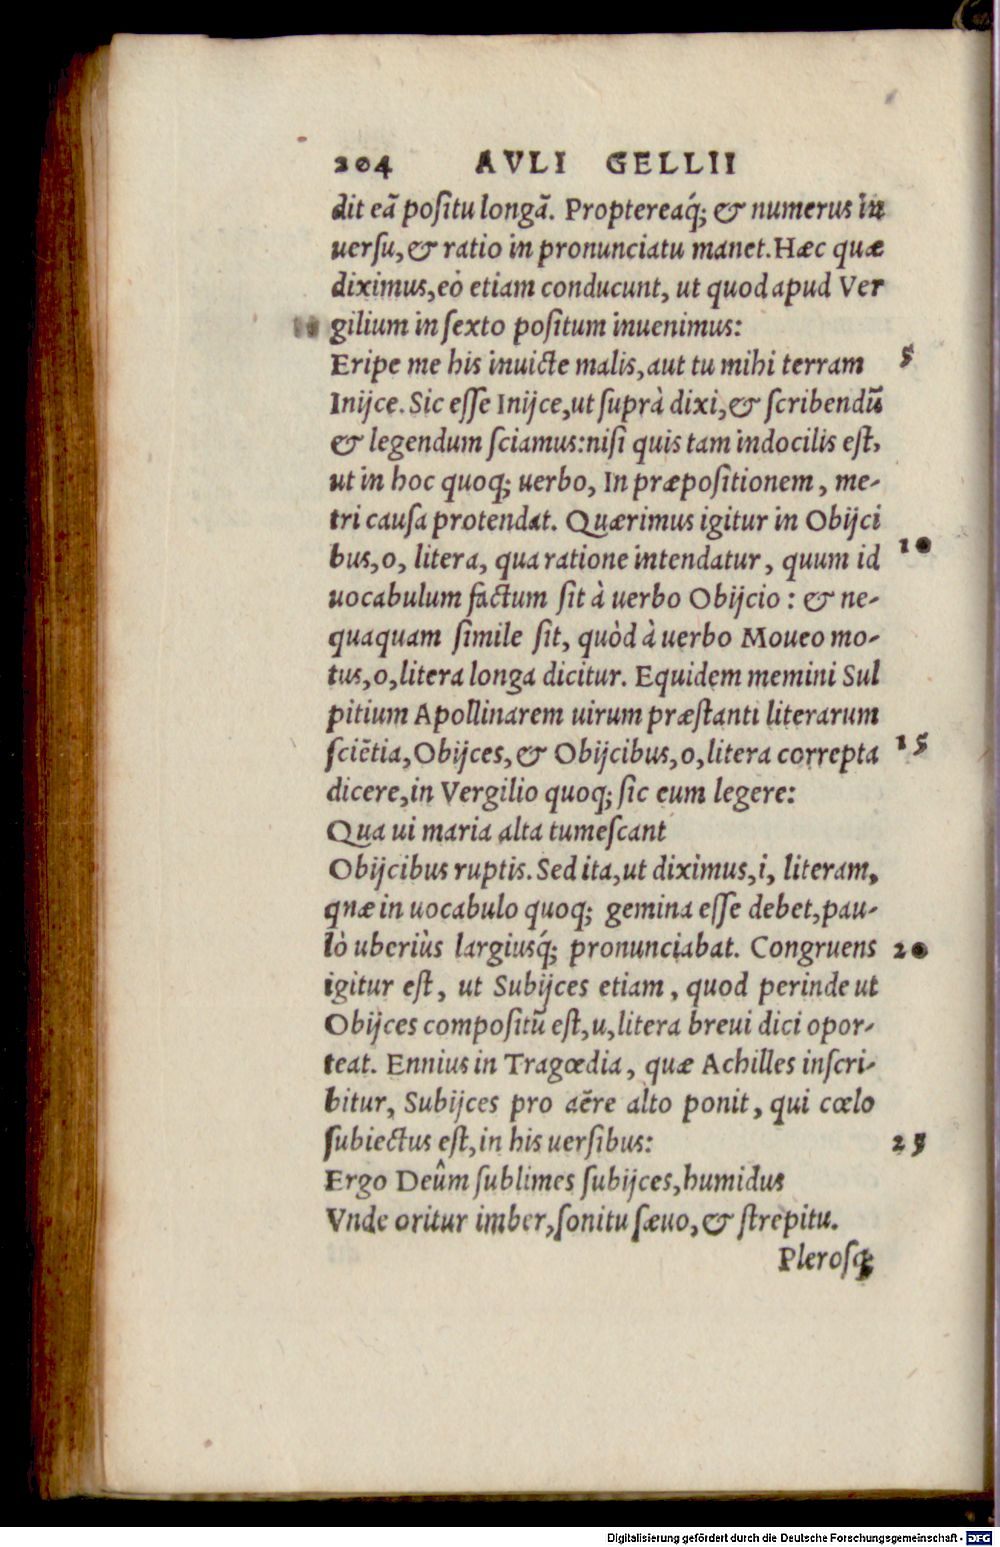 204 AVLI GELLII
dit eã poſitu longã. Proptereaq́; & numerus in
uerſu, & ratio in pronunciatu manet. Hæc quæ
diximus, eò etiam conducunt, ut quod apud Ver
gilium in ſexto poſitum inuenimus:
Eripe me his inuicte malis, aut tu mihi terram 5
Inijce. Sic eſſe Inijce, ut ſuprà dixi, & ſcribendũ
& legendum ſciamus: niſi quis tam indocilis eſt,
ut in hoc quoq; uerbo, In præpoſitionem, me-
tri cauſa protendat. Quærimus igitur in Obijci
bus, o, litera, qua ratione intendatur, quum id 10
uocabulum factum ſit à uerbo Obijcio: & ne-
quaquam ſimile ſit, quòd à uerbo Moueo mo-
tus, o, litera longa dicitur. Equidem memini Sul
pitium Apollinarem uirum præſtanti literarum
ſciẽtia, Obijces, & Obijcibus, o, litera correpta 15
dicere, in Vergilio quoq; ſic eum legere:
Qua ui maria alta tumeſcant
Obijcibus ruptis. Sed ita, ut diximus, i, literam,
qnæ in uocabulo quoq; gemina eſſe debet, pau-
lò uberiùs largiusq́; pronunciabat. Congruens 20
igitur eſt, ut Subijces etiam, quod perinde ut
Obijces compoſitũ eſt, u, litera breui dici opor-
teat. Ennius in Tragœdia, quæ Achilles inſcri-
bitur, Subijces pro aëre alto ponit, qui cœlo
ſubiectus eſt, in his uerſibus: 25
Ergo Deûm ſublimes ſubijces, humidus
Vnde oritur imber, ſonitu ſæuo, & ſtrepitu.
Pleroſq;
Digitalisierung gefördert durch die Deutsche Forschungsgemeinschaft - DFG